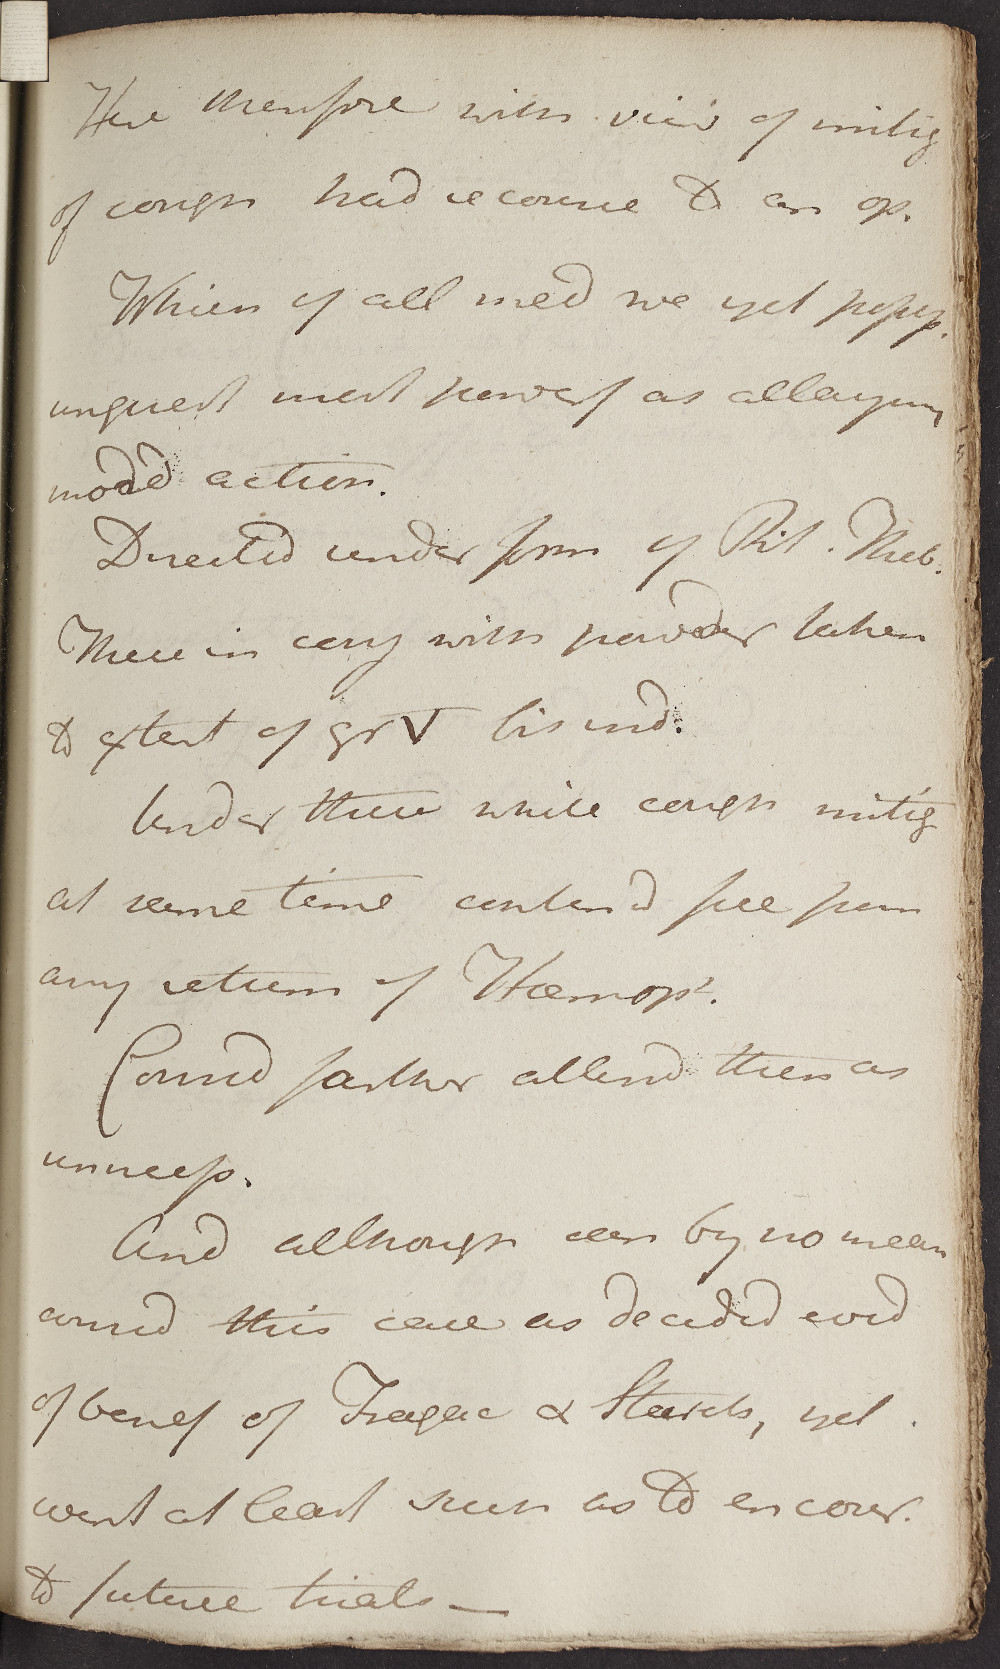 Here therefore with view of mitig
of cough had recourse to an op.
Which of all med we yet possess.
unquest most powerf as allaying
morbd action.
Directed under form of Pil. Theb.
These in conj with powder taken
to extent of gr V bis ind.
Under these while cough mitig
at same time contend free from
any return of Hæmops.
Consid farther attend then as
unnecess.
And although can by no mean
consid this case as decided evid
of benef of Tragac & Starch, yet
went at least such as to encour.
to future trials —